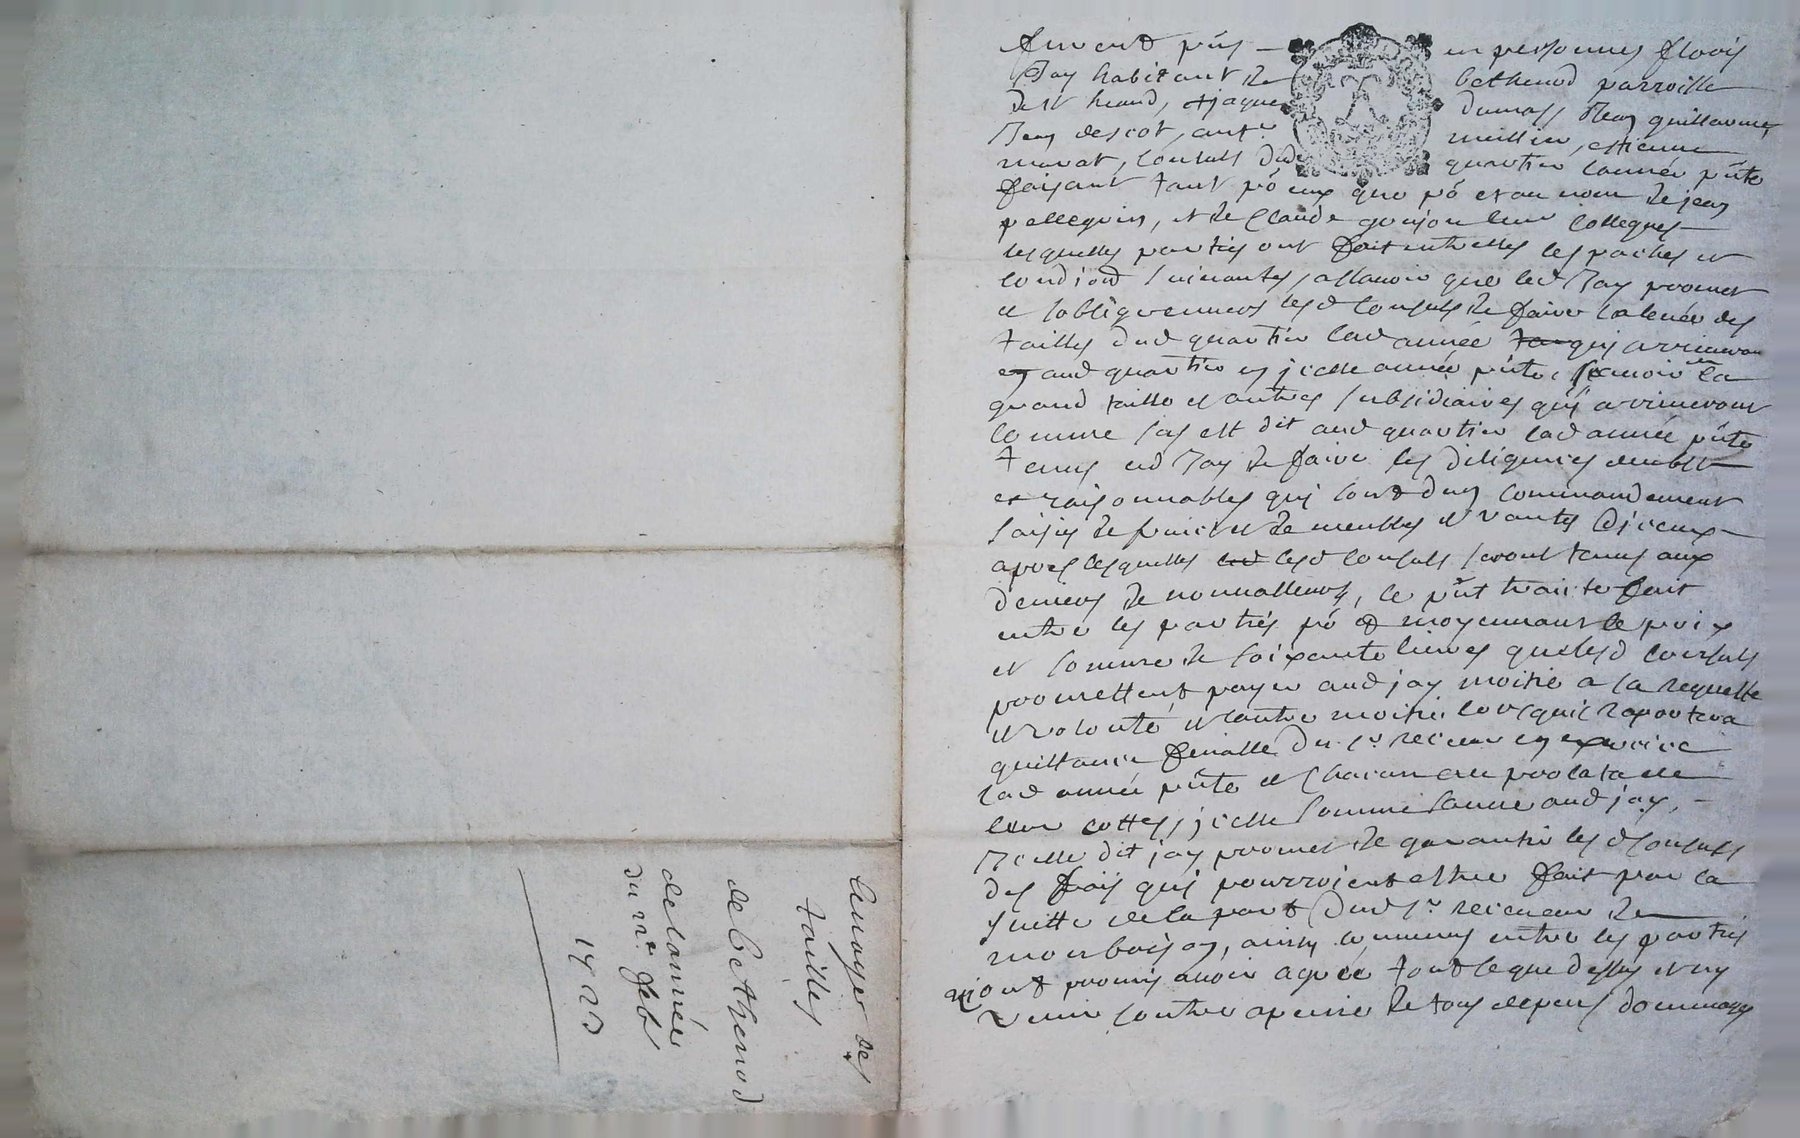 furent pñs en personnes flovis
Jay habitant de bethenod parroisse
de St heand, et jaques dumas, Jean guillaume,
Jean descot, ant.e meillier, estienne
marat, consuls dud quartier lannée pñte
faisant tant pó eux que pó et au nom de jean
pellegrin, et de Claude goujon leur collegues
lesquelles parties ont fait entrelles les paches et
condions suivantes, assavoir que led Jay promet
et soblige envers lesd consuls de faire la levée des
tailles dud quartier lad année qui arriveron
aud quartier en jcelle année pñte, scavoir la
grand taille et autres subsidiaires qui arriveront
comme sus est dit aud quartier lad année pñte
tenu led Jay de faire les diligences
et raisonnables qui sont dun commandement
saisie de fruict et de meubles et vante djceux
apres lesquelles lesd consuls seront tenus aux
deniers de nonvalleurs, le pñt traicté fait
entre les parties pó et moyennant le prix
et somme de soixante livres que lesd consuls
promettent payer aud jay moitié a sa requeste
et volonté, et lautre moitié lorsquil raportera
quittance finalle du sr receveur en exercice
lad année pñte et chacun au prolata de
leur cottes, jcelle somme aud jay,
Jcelle dit jay promet de garantir les d consuls
des frais qui pourroient estre fait par la
suitte de la part dud sr receveur de
monbrison, ainsy convenu entre les parties
qui ont promis avoir agréé tout le que dessus et ny
venir contre a peine de tous depens dommages
Lenvoyer des
tailles
de bethenod
de lannée
du 22e feb
1723